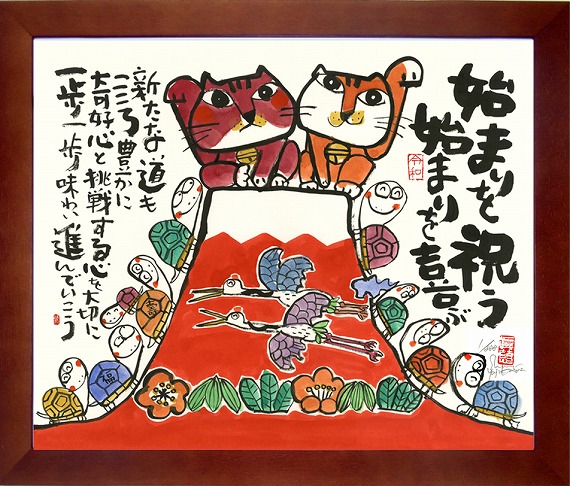 始まりを祝う
始まりを喜ぶ
令和
新たな道も
こころ豊かに
好奇心と挑戦する心を大切に
一歩一歩味わい進んでいこう
福